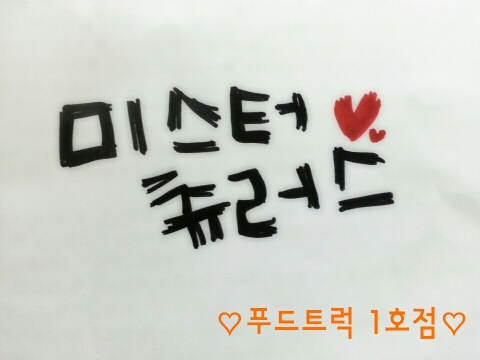 미스터 ♥♥
츄러스
♡푸드트럭 1호점♡